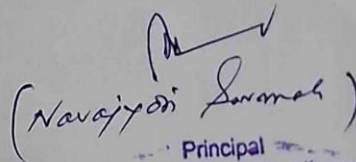 (Navajyoti Sarmah)
Principal